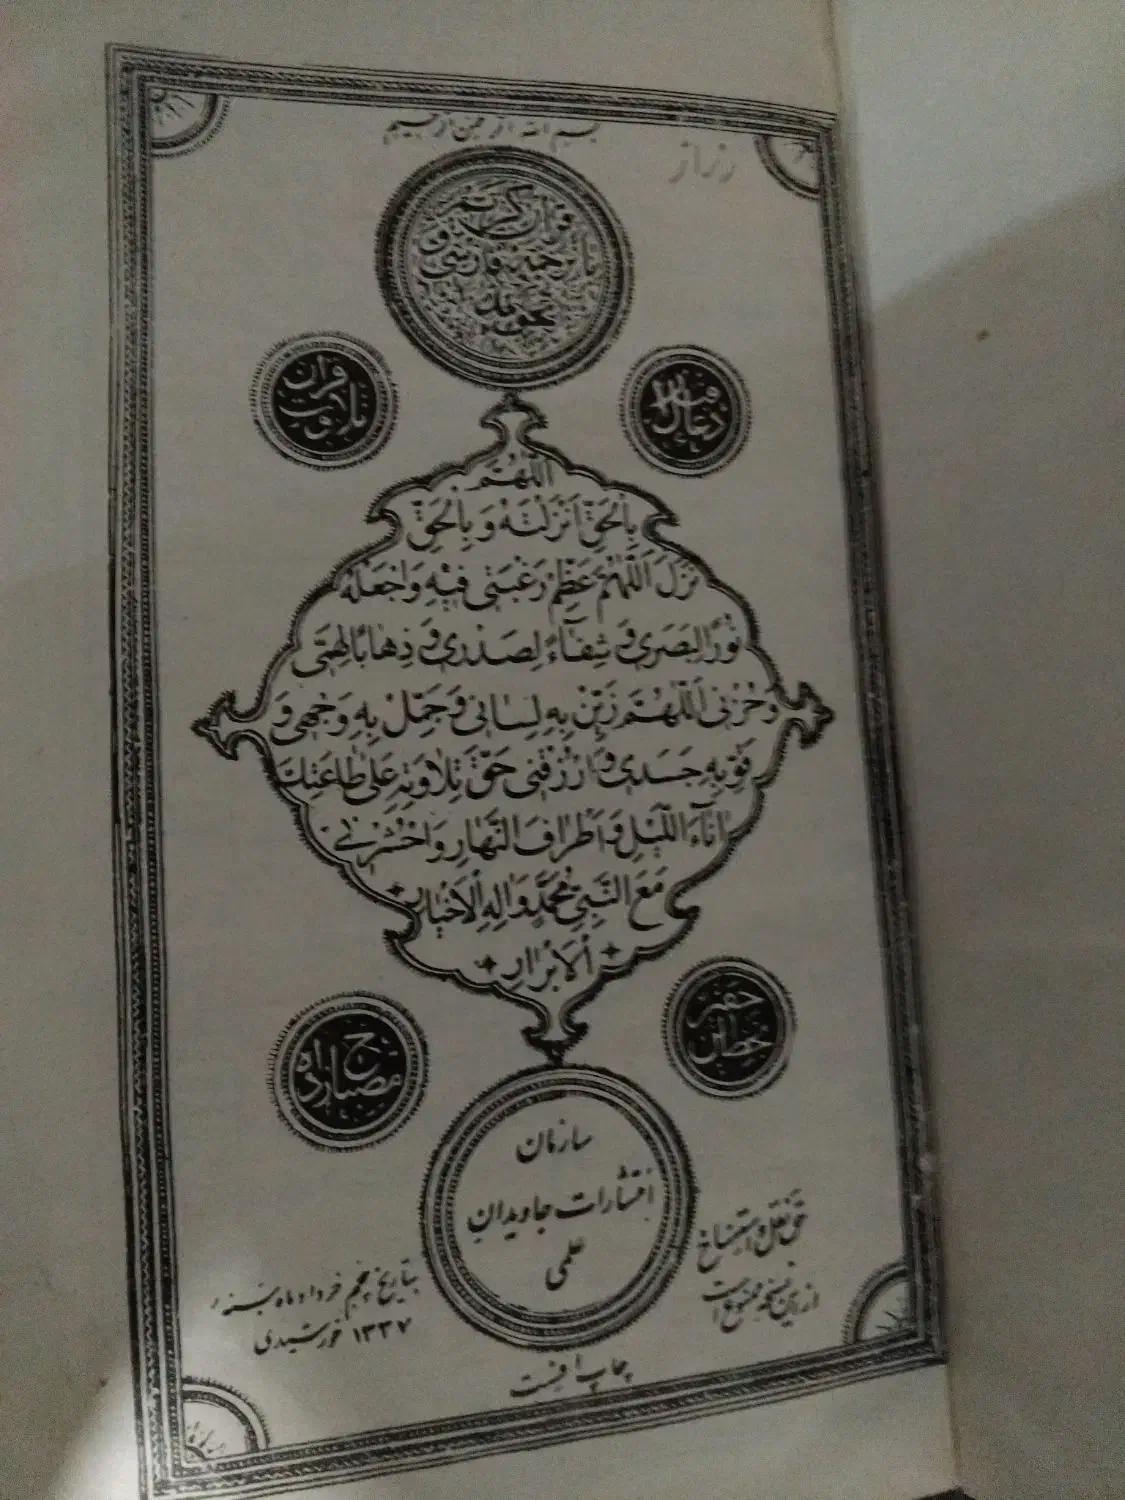 بسم الله الرحمن الرحیم
قرآن کریم
با ترجمه فارسی و
دعای قبل از
تلاوت قرآن
اَللّٰهُمَّ
بِالْحَقِّ اَنْزَلْتَهُ وَ بِالْحَقِّ
نَزَلَ اَللّٰهُمَّ عَظِّمْ رَغْبَتی فیهِ وَاجْعَلْهُ
نُورًا لِبَصَری وَ شِفآءً لِصَدْری وَ ذِهابًا لِهَمّی
وَ حُزْنی اَللّٰهُمَّ زَیِّنْ بِهِ لِسانی وَ جَمِّلْ بِهِ وَجْهی وَ
قَوِّ بِهِ جَسَدی وَ ارْزُقْنی حَقَّ تِلاوَتِهِ عَلیٰ طاعَتِكَ
اٰنآءَ اللَّیْلِ وَ اَطْرافَ النَّهارِ وَ احْشُرْنی
مَعَ النَّبِیِّ مُحَمَّدٍ وَ الِهِ الْاَخْیارِ
اَلْاَبْرارِ
سازمان
انتشارات جاویدان
علمی
حق نقل و استنساخ
از این نسخه ممنوع است
بتاریخ پنجم خرداد ماه سنه
۱۳۳۷ خورشیدی
چاپ افست